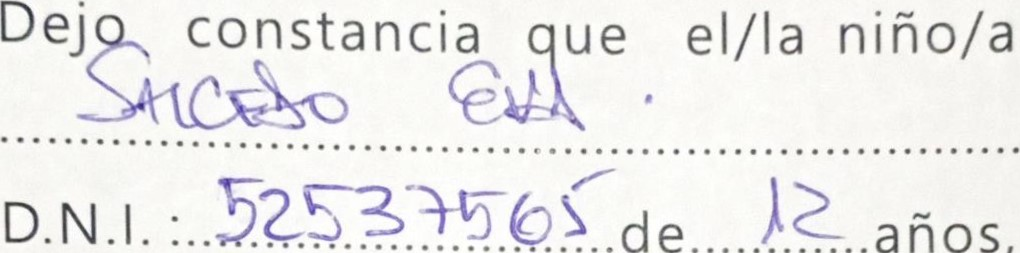 Dejo constancia que el/la niño/a
SALCEDO EVA.
D.N.I.: 52537565 de 12 años.